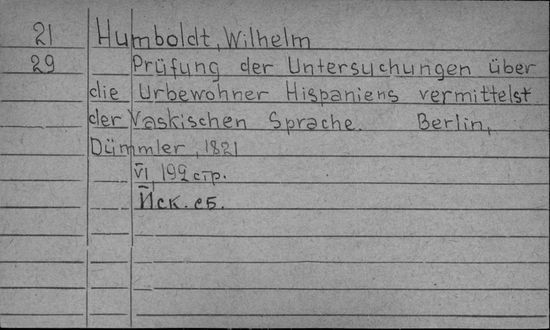 21 Humboldt, Wilhelm
29 Prüfung der Untersuchungen über
die Urbewohner Hispaniens vermittelst
der Vaskischen Sprache. Berlin,
Dümmler, 1821
VI, 192 стр.
Иск. сб.